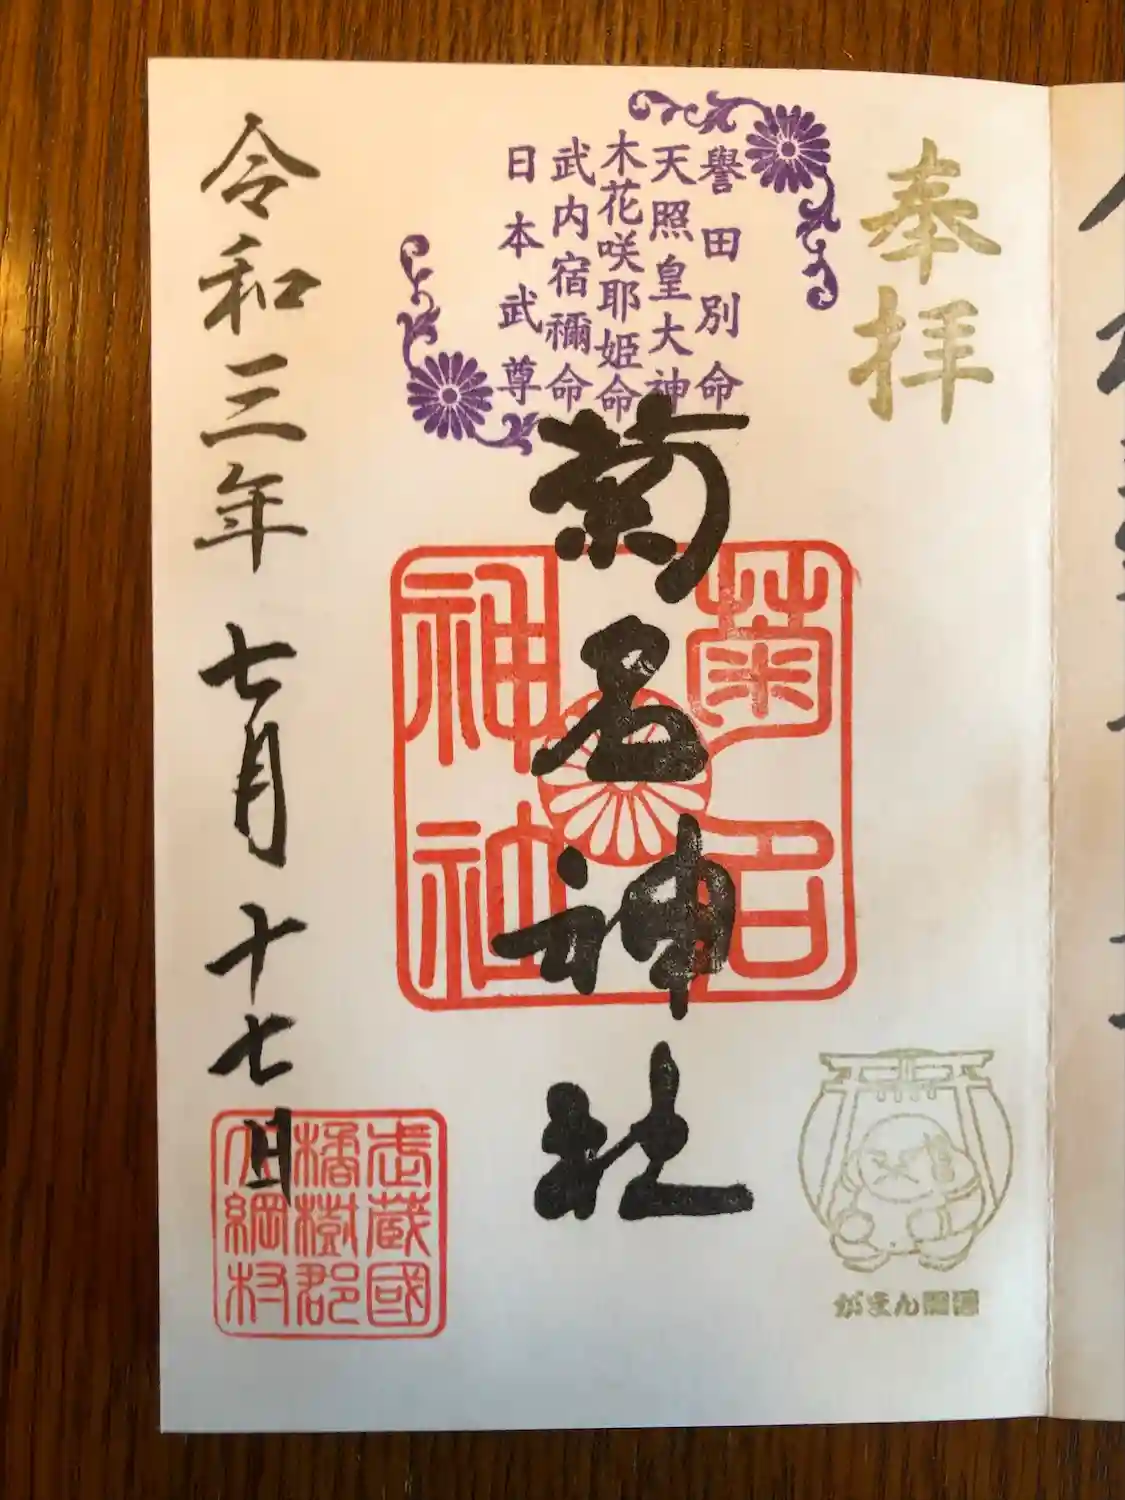 奉拝
譽田別命
天照皇大神
木花咲耶姫命
武内宿禰命
日本武尊
菊名神社
菊名
神社
令和三年七月十七日
武蔵國
橘樹郡
大綱村
がまん